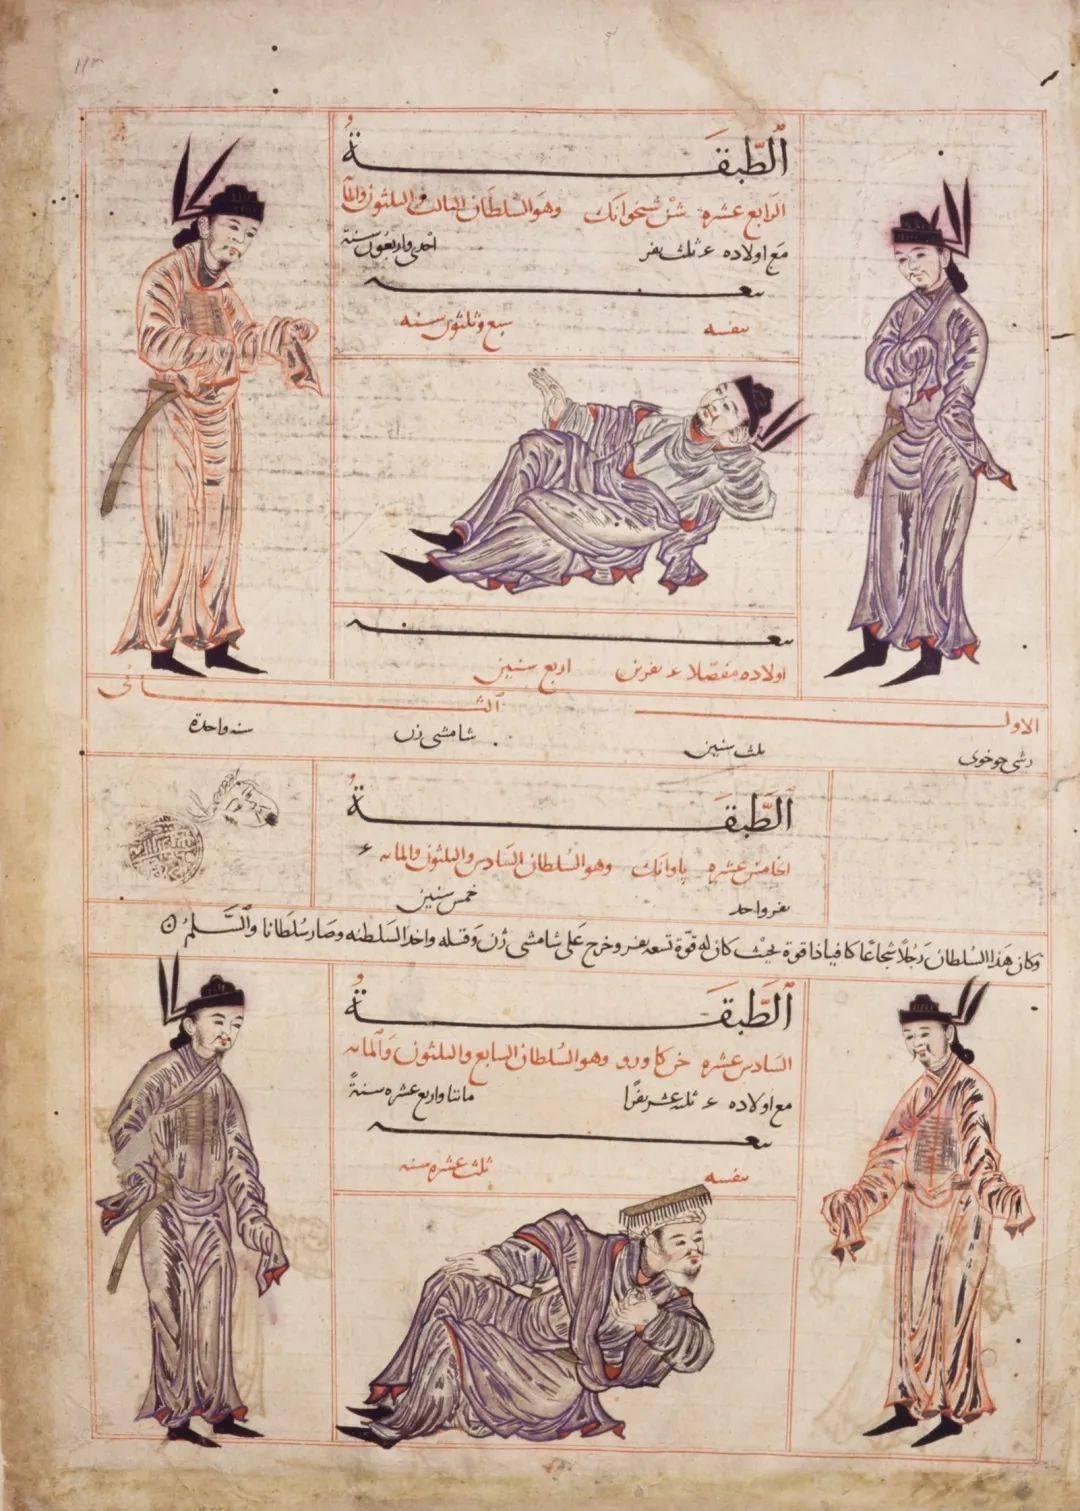 الطبقة
الرابع عشره شن شيخوانك وهو السلطان الثالث والثلثون والمائه
مع اولاده ء ثلث نفر احدى واربعون سنة
بعد
نفسه سبع وثلثون سنه
بعد
اولاده مفصلا ء نفرين اربع سنين
الاول الثانى
ثلث سنين شامشى زن سنه واحدة
الطبقة
الخامس عشره پاوانك وهو السلطان السادس والثلثون والمائه ء
نفر واحد خمس سنين
وكان هذا السلطان رجلا شجاعا كافيا ذا قوة بحيث كان له قوة تسعه نفر وخرج على شامشى زن وقتله واخذ السلطنه وصار سلطانا والسلم
الطبقة
السادس عشره خركاورو وهو السلطان السابع والثلثون والمائه
مع اولاده ء ثلثه عشر نفرا مائتا واربع عشره سنة
نفسه ثلث عشره سنه